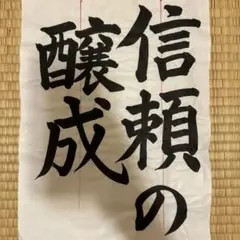 信頼の
醸成